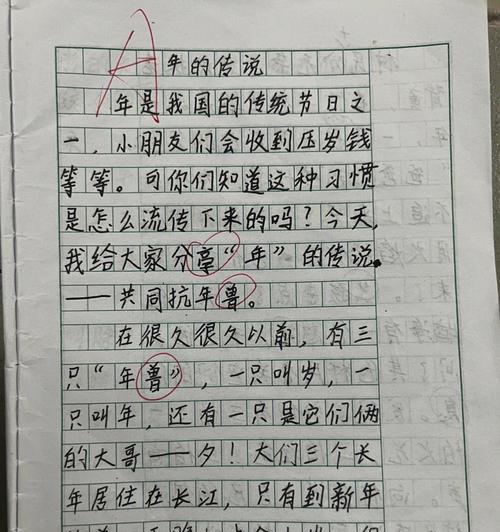 A
年的传说
年是我国的传统节日之
一，小朋友们会收到压岁钱
等等。可你们知道这种习惯
是怎么流传下来的吗？今天，
我给大家分享“年”的传说。
——共同抗年兽。
在很久很久以前，有三
只“年兽”，一只叫岁，一
只叫年，还有一只是它们俩
的大哥——夕！大们三个长
年居住在长江，只有到新年